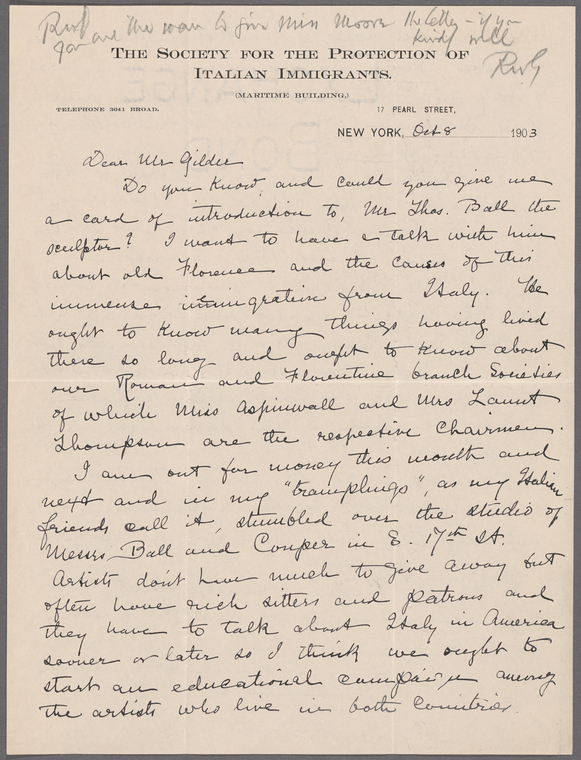 are the man to give Miss Moore the letter - if you
kindly will
RWG
THE SOCIETY FOR THE PROTECTION OF
ITALIAN IMMIGRANTS.
(MARITIME BUILDING,)
TELEPHONE 3041 BROAD.
17 PEARL STREET,
NEW YORK, Oct 8 1903
Dear Mr Gilder
Do you know, and could you give me
a card of introduction to, Mr Thos. Ball the
sculptor? I want to have a talk with him
about old Florence and the causes of this
immense immigration from Italy. He
ought to know many things having lived
there so long and ought to know about
our Roman and Florentine branch Societies
of which Miss Aspinwall and Mrs Launt
Thompson are the respective Chairmen.
I am out for money this month and
next and in my "tramplings", as my Italian
friends call it, stumbled over the studio of
Messrs Ball and Couper in E. 17th St.
Artists don't have much to give away but
often have rich sitters and patrons and
they have to talk about Italy in America
sooner or later so I think we ought to
start an educational campaign among
the artists who live in both countries.